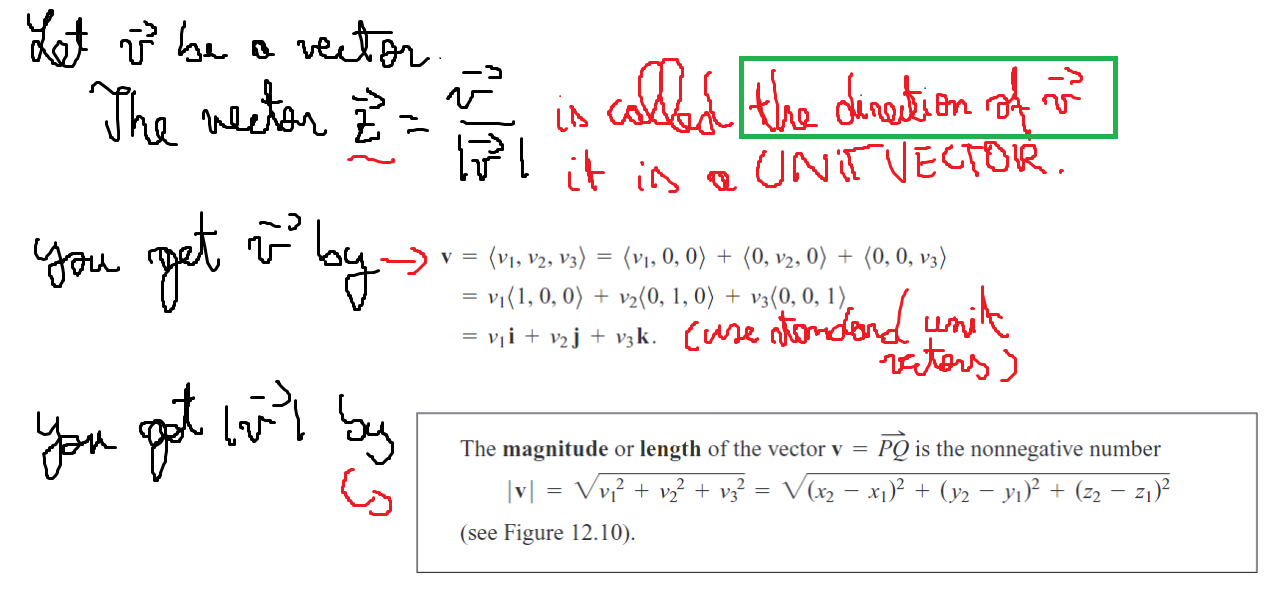 Let v⃗ be a vector.
The vector z⃗ = v⃗ / |v⃗| is called the direction of v⃗
it is a UNIT VECTOR.
you get v⃗ by → v = ⟨v₁, v₂, v₃⟩ = ⟨v₁, 0, 0⟩ + ⟨0, v₂, 0⟩ + ⟨0, 0, v₃⟩
= v₁⟨1, 0, 0⟩ + v₂⟨0, 1, 0⟩ + v₃⟨0, 0, 1⟩
= v₁i + v₂j + v₃k. (use standard unit
vectors)
you get |v⃗| by
The magnitude or length of the vector v = P⃗Q⃗ is the nonnegative number
|v| = √(v₁² + v₂² + v₃²) = √((x₂ − x₁)² + (y₂ − y₁)² + (z₂ − z₁)²)
(see Figure 12.10).